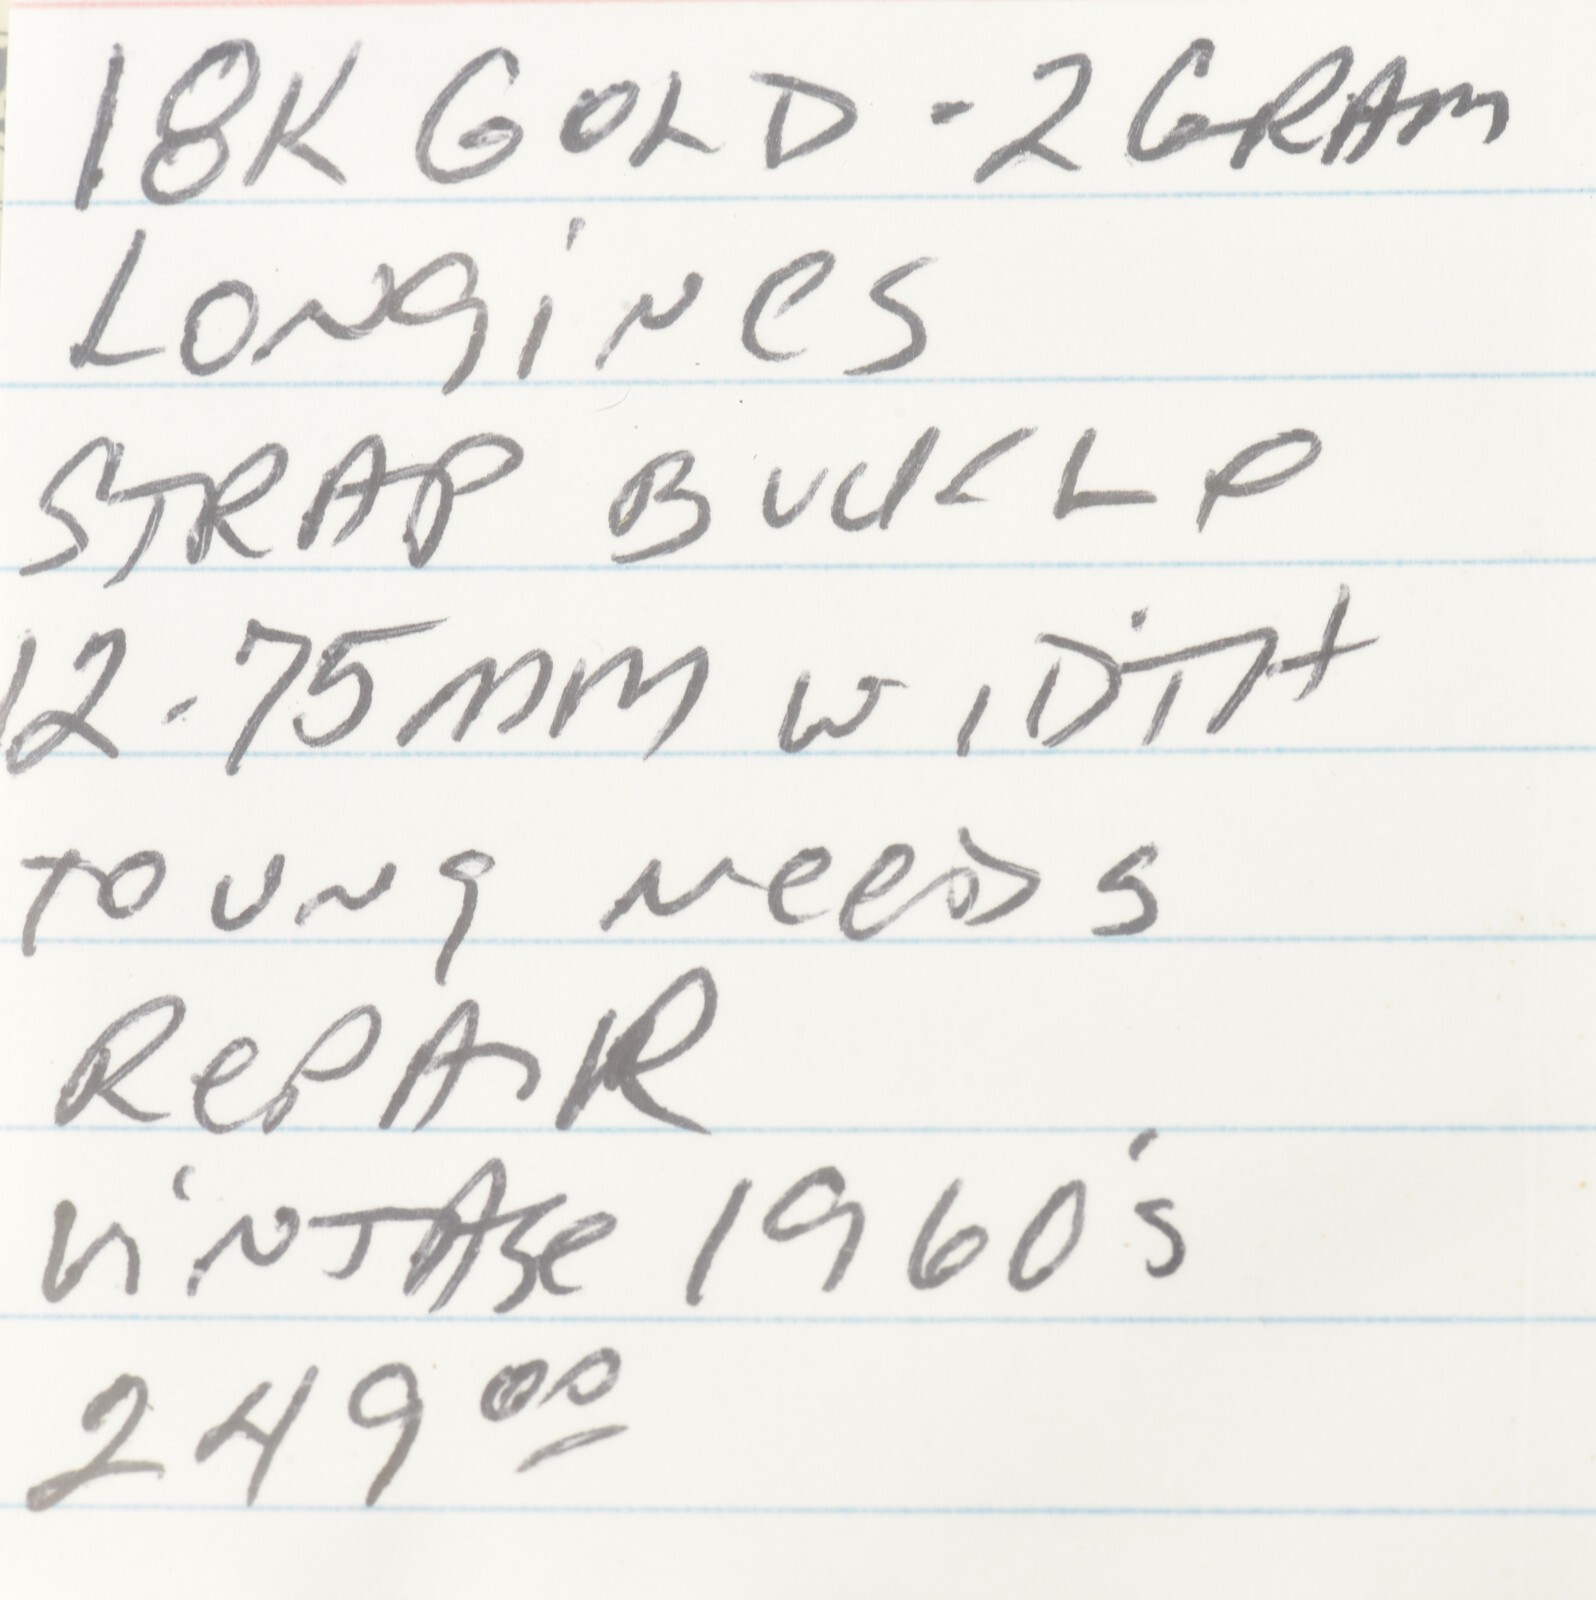 18K GOLD - 2 GRAM
LONgiNeS
STRAP BUCKLe
12.75mm WiDTH
TOUNg NeeDS
RePAiR
ViNTAge 1960's
249 00